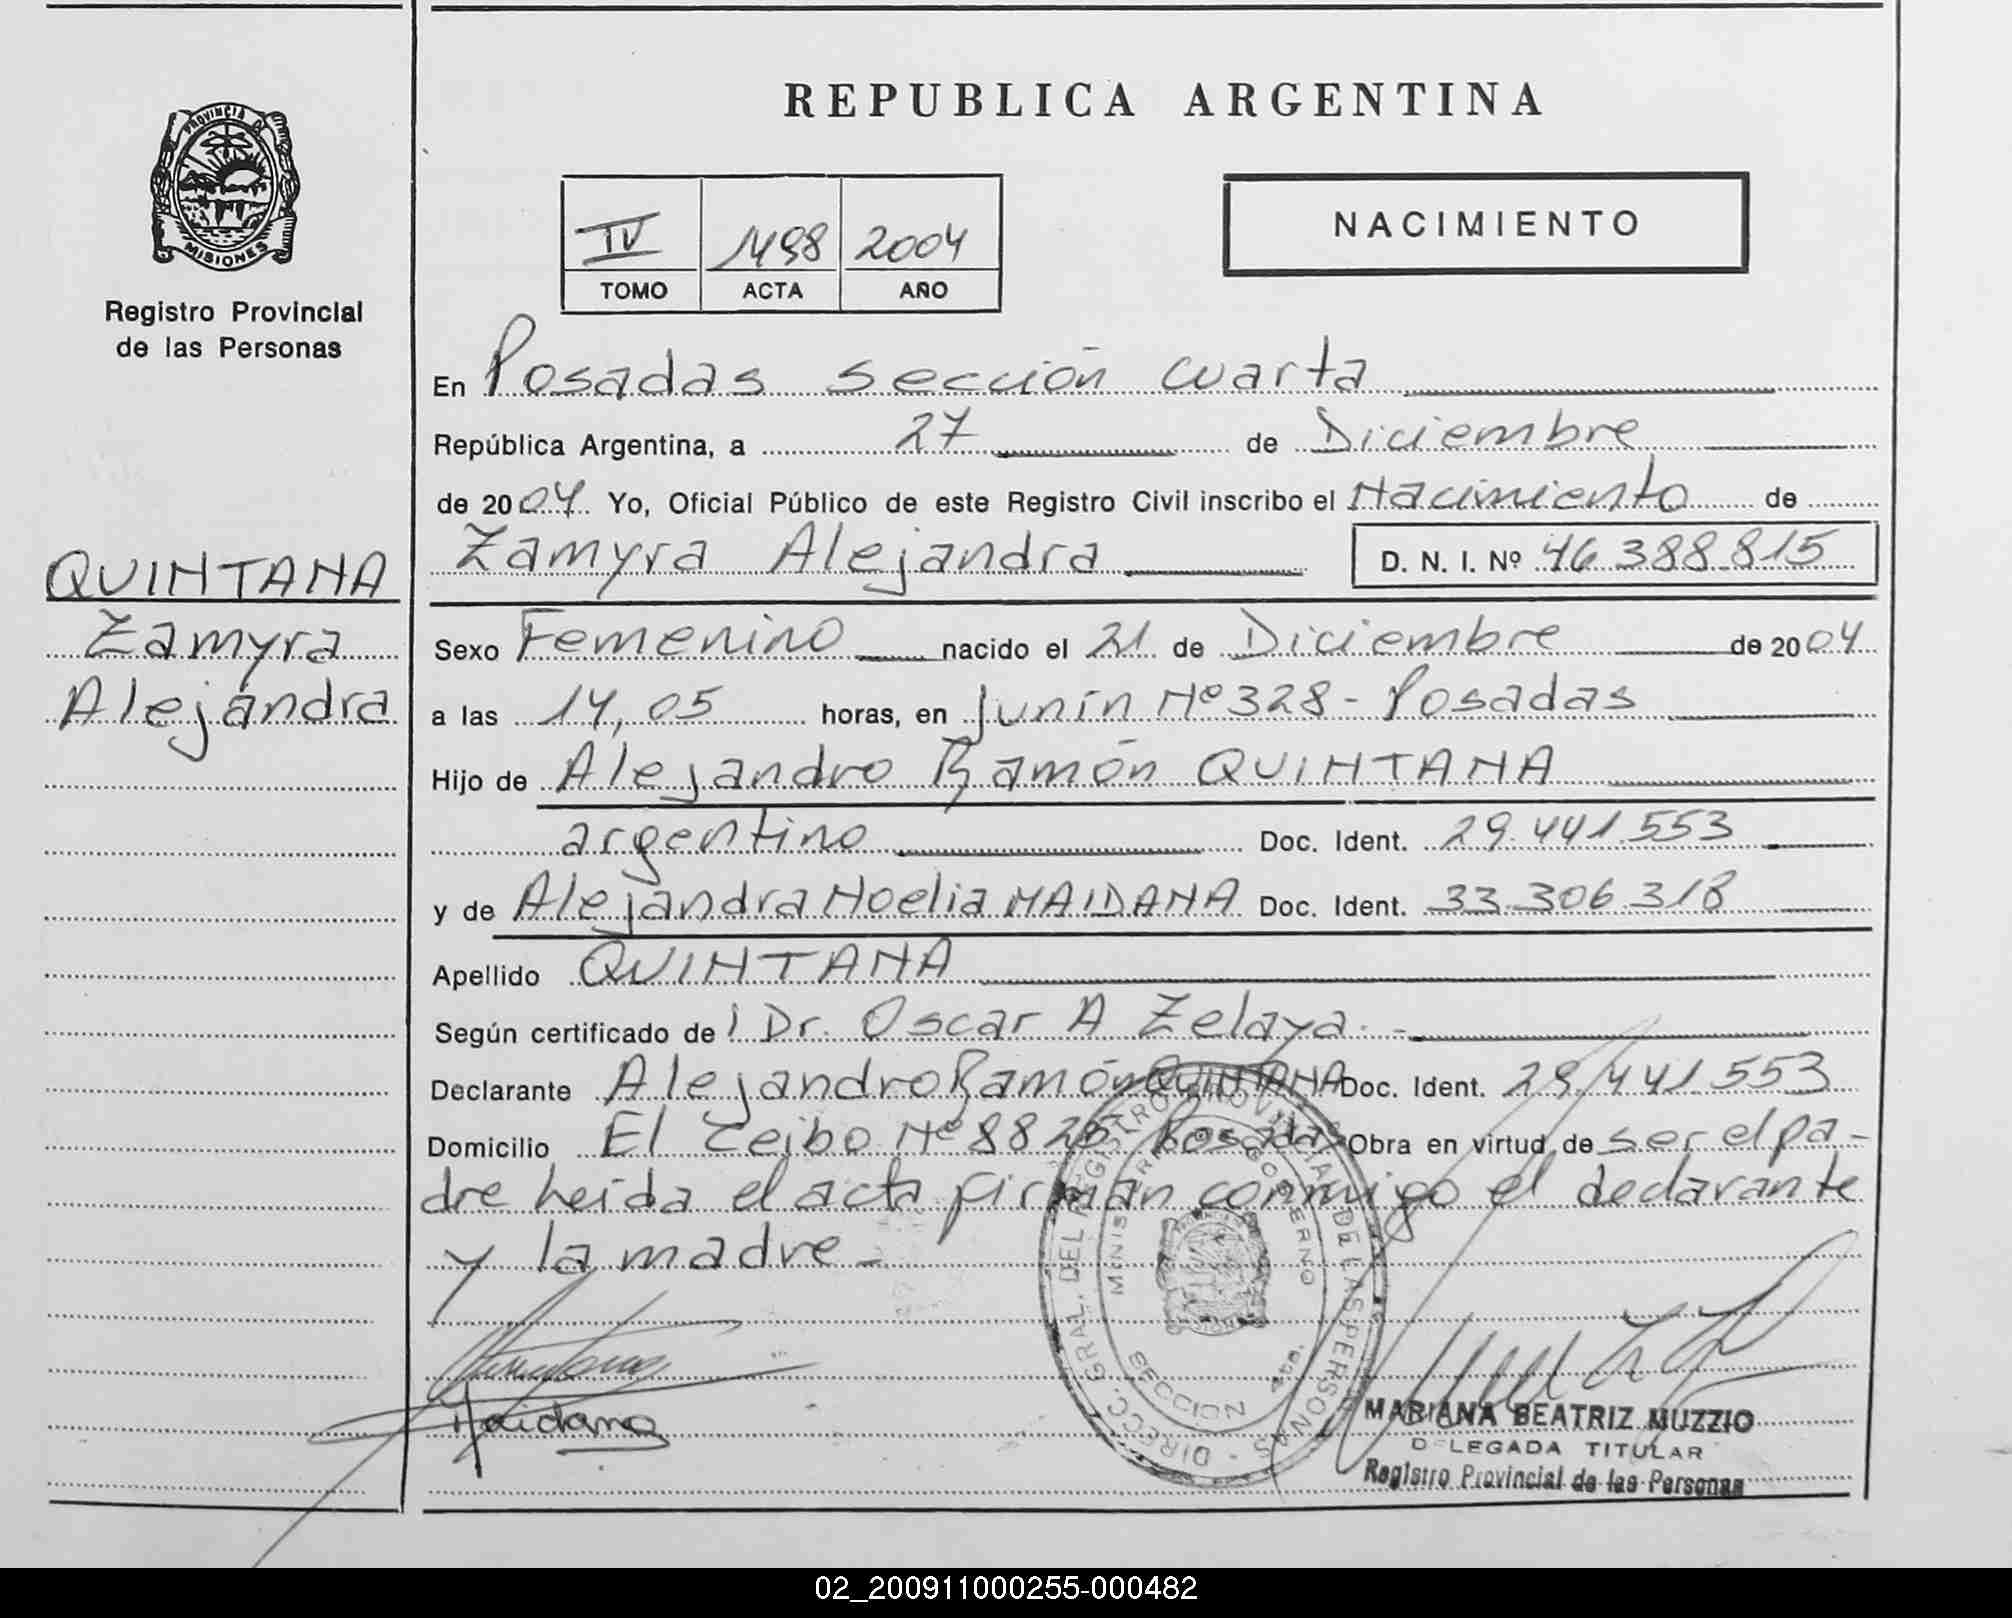 REPUBLICA ARGENTINA
PROVINCIA DE
MISIONES
Registro Provincial
de las Personas
IV 1498 2004
TOMO ACTA AÑO
NACIMIENTO
En Posadas sección cuarta
República Argentina, a 27 de Diciembre
de 2004 Yo, Oficial Público de este Registro Civil inscribo el Nacimiento de
Zamyra Alejandra D. N. I. Nº 46.388.815
QUINTANA
Zamyra
Alejandra
Sexo Femenino nacido el 21 de Diciembre de 2004
a las 14,05 horas, en Junín Nº 328 - Posadas
Hijo de Alejandro Ramón QUINTANA
argentino Doc. Ident. 29.441.553
y de Alejandra Noelia MAIDANA Doc. Ident. 33.306.318
Apellido QUINTANA
Según certificado de Dr. Oscar A Zelaya.-
Declarante Alejandro Ramón QUINTANA Doc. Ident. 29.441.553
Domicilio El Zeibo Nº Posadas Obra en virtud de ser el pa-
dre heida el acta firman conmigo el declarante
y la madre -
DIRECC. GRAL. DEL REGISTRO PROVINCIAL DE LAS PERSONAS -
MINISTERIO GOBIERNO
SECCION 4ta.
Maidana
MARIANA BEATRIZ MUZZIO
DELEGADA TITULAR
Registro Provincial de las Personas
02_200911000255-000482